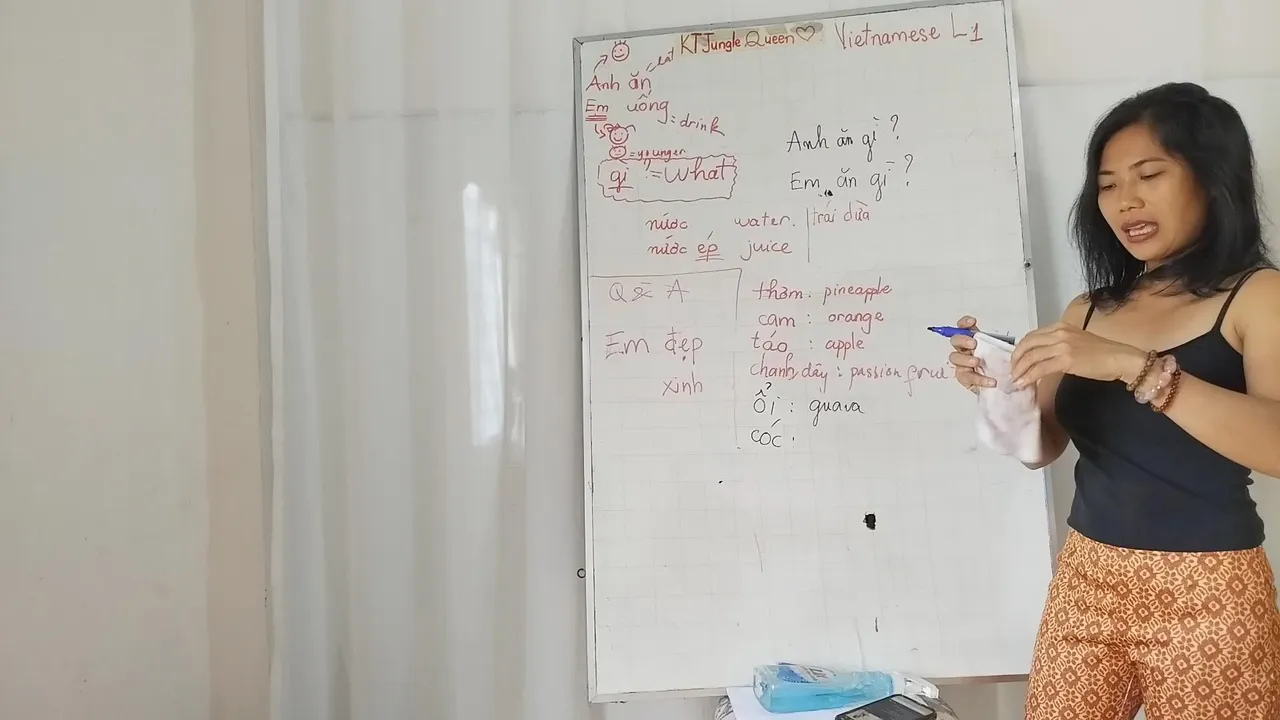 KT Jungle Queen♡ Vietnamese L1
Anh ăn "eat
Em uống = drink
= younger
gì ? = what
Anh ăn gì ?
Em ăn gì ?
nước water. trái dừa
nước ép juice
Q & A
Em đẹp
xinh
thơm : pineapple
cam : orange
táo : apple
chanh dây : passion frui
ổi : guava
cóc :